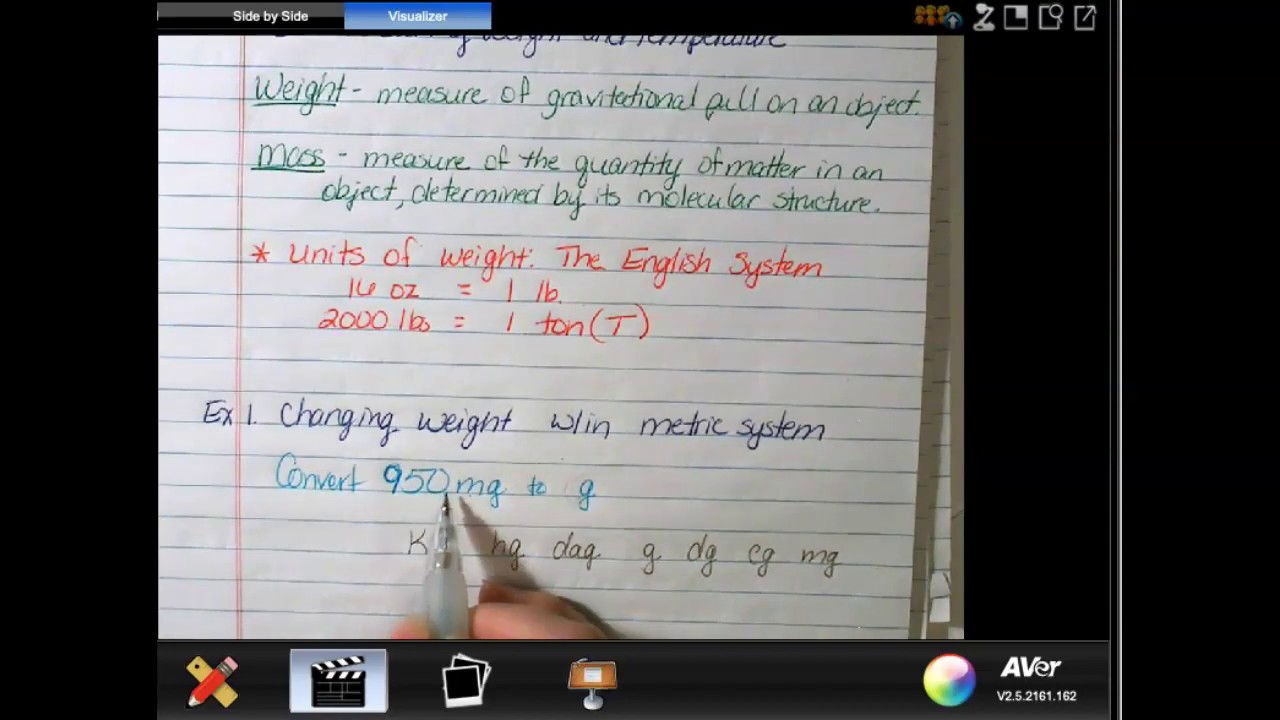 Side by Side Visualizer
of weight and Temperature
Weight - measure of gravitational pull on an object.
Mass - measure of the quantity of matter in an
object, determined by its molecular structure.
* Units of weight: The English System
16 oz = 1 lb.
2000 lbs = 1 ton (T)
Ex 1. Changing weight w/in metric system
Convert 950 mg to g
K hg dag g dg cg mg
AVer
V2.5.2161.162